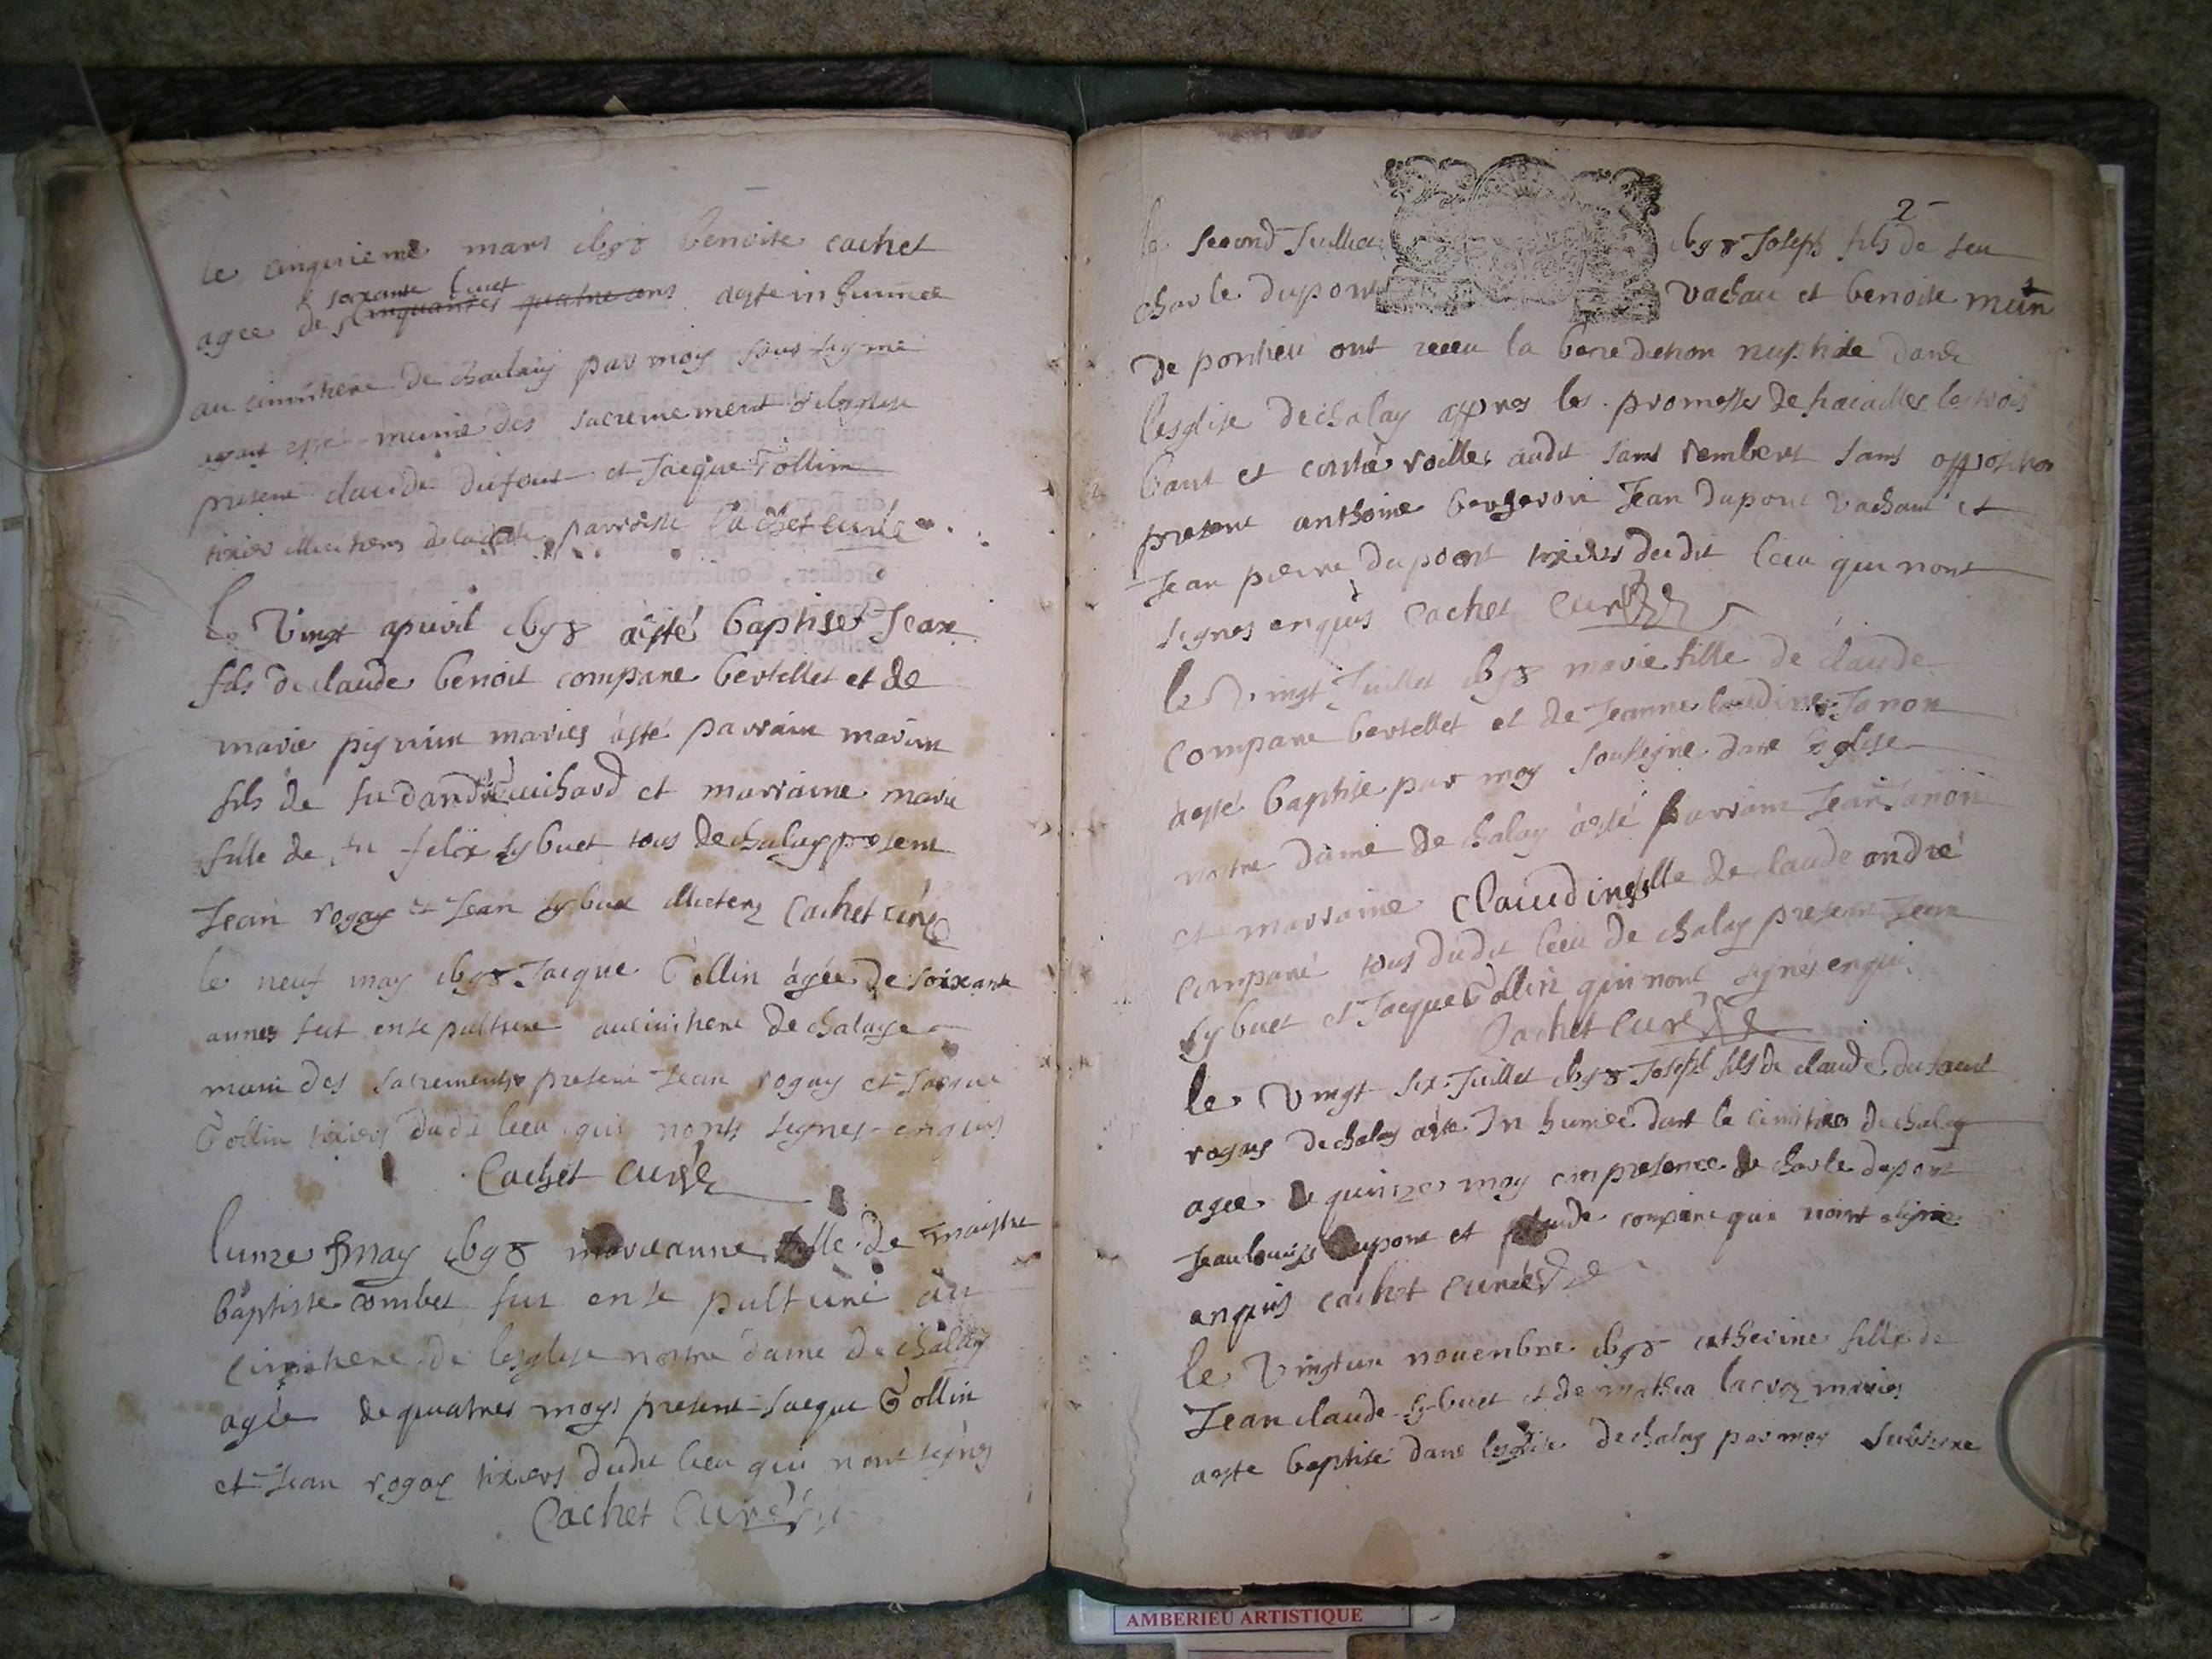 le cinquieme mars 1698 benoite cachet
agee de soixante huict cinquantes quatre ans aeste inhumee
au cimithere de chalay par moy sous signé
ayant esté munie des sacremement de leglise
present claude dufour et Jacque Tollin
tixier illictteres parroisse Cachet curé
le Vingt apuril 1698 aesté baptisé Jean
fils de claude benoit compane bertellet et de
marie pignion maries a esté parrain marin
fils de fu dandré Cuichard et marraine marie
fille de fu felix sybuet tous de chalay present
Jean rogay et Jean sybuet illicterz Cachet curé
le neuf may 1698 Jacque Tollin àgée de soixante
annes fut ensepulturé aucimithere de chalaye
muni des sacrements present Jean rogay et Jacque
Tollin tixiers dudi lieu qui nonts signes enquis
Cachet curé
lunze may 1698 marieanne fille de maistre
baptiste combet fut ensepulturé au
cimithere de lesglise nostre dame de chalay
agée de quatres moys present Jacque Tollin
et Jean rogay tixiers dudit lieu qui nont signés
Cachet Curé
2
le second Juillet 1698 Joseph fils de feu
charle dupont vachau et benoite
de portieu ont receu la benediction nuptiale dans
lesglise dechalay appres les promesses de les trois
bant et audit saint rembert sans opposition
present anthoine bergeron Jean dupont vachaut et
Jean pierre dupont tixiers dudit lieu qui nont
signes enquis Cachet curé
le Vingt Juillet 1698 marie fille de claude
compane bertellet et de Jeanne claudine Janon
aesté baptise par moy soussigne dans leglise
nostre dame de chalay àesté parrain Jean Janon
et marraine Claudine fille de claude andré
compané tous dudit lieu de chalay present Jean
sybuet et Jacque Tollin qui nont signés enqui
Cachet curé
le Vingt six Juillet 1698 Joseph fils de claude dufour
rogay de chalay aesté Inhumée dant le cimitier de chalay
ageé de quinze moy en presence de charle dupont
Jeanlouys dupont et claude compane qui noint signe
enquis cachet curée
le Vingtun nouenbre 1698 catherine fille de
Jean claude sybuet et de mathia lacroz maries
aeste baptisé dans lesglise dechalay par moy subsigne
AMBERIEU ARTISTIQUE